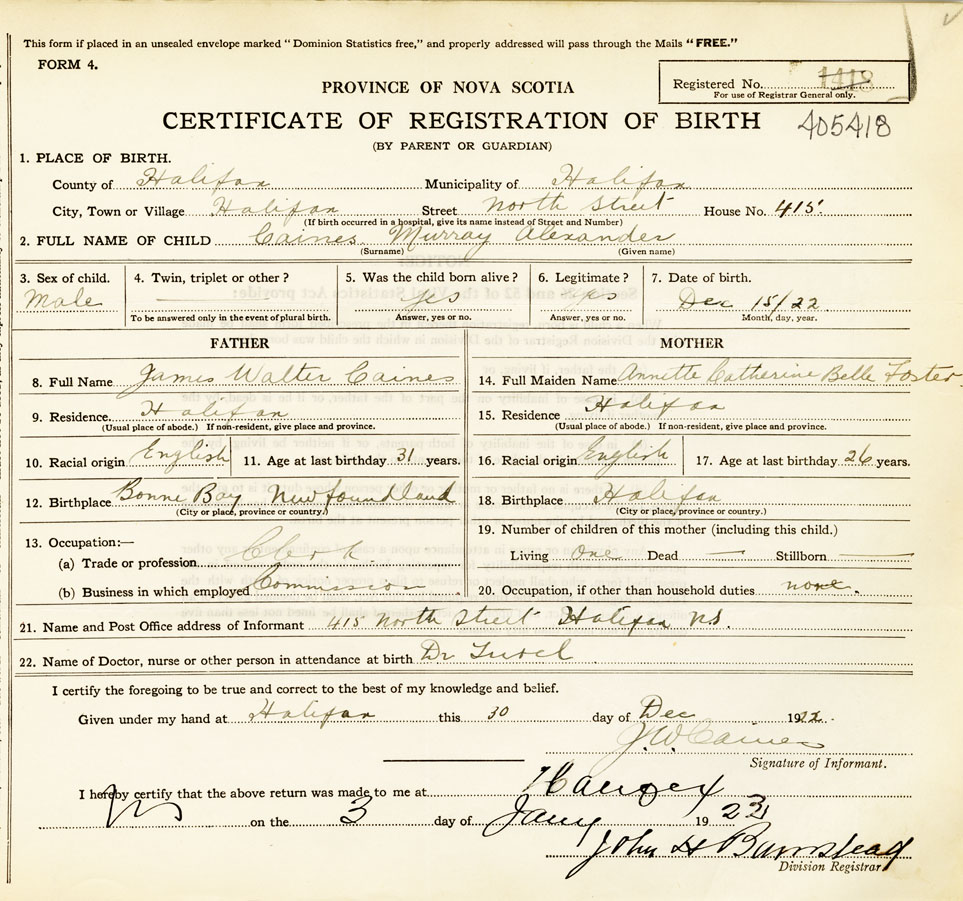 This form if placed in an unsealed envelope marked "Dominion Statistics free," and properly addressed will pass through the Mails "FREE."
FORM 4.
PROVINCE OF NOVA SCOTIA
Registered No. 1418
For use of Registrar General only.
CERTIFICATE OF REGISTRATION OF BIRTH 405418
(BY PARENT OR GUARDIAN)
1. PLACE OF BIRTH.
County of Halifax Municipality of Halifax
City, Town or Village Halifax Street North Street House No. 415.
(If birth occurred in a hospital, give its name instead of Street and Number)
2. FULL NAME OF CHILD Caines Murray Alexander
(Surname) (Given name)
3. Sex of child. 4. Twin, triplet or other? 5. Was the child born alive? 6. Legitimate? 7. Date of birth.
Male yes yes Dec 15/22
To be answered only in the event of plural birth. Answer, yes or no. Answer, yes or no. Month, day, year.
FATHER MOTHER
8. Full Name James Walter Caines 14. Full Maiden Name Annette Catherine Belle Foster
9. Residence. Halifax 15. Residence Halifax
(Usual place of abode.) If non-resident, give place and province. (Usual place of abode.) If non-resident, give place and province.
10. Racial origin English 11. Age at last birthday 31 years. 16. Racial origin English 17. Age at last birthday 26 years.
12. Birthplace Bonne Bay Newfoundland 18. Birthplace Halifax
(City or place, province or country.) (City or place, province or country.)
19. Number of children of this mother (including this child.)
13. Occupation:—
(a) Trade or profession Clerk Living One Dead — Stillborn —
(b) Business in which employed Commission 20. Occupation, if other than household duties none.
21. Name and Post Office address of Informant 415 North Street Halifax NS.
22. Name of Doctor, nurse or other person in attendance at birth Dr
I certify the foregoing to be true and correct to the best of my knowledge and belief.
Given under my hand at Halifax this 30 day of Dec 1922.
J.W. Caines
Signature of Informant.
I hereby certify that the above return was made to me at Halifax
NS on the 3 day of Jany 1923
John H Barnstead
Division Registrar